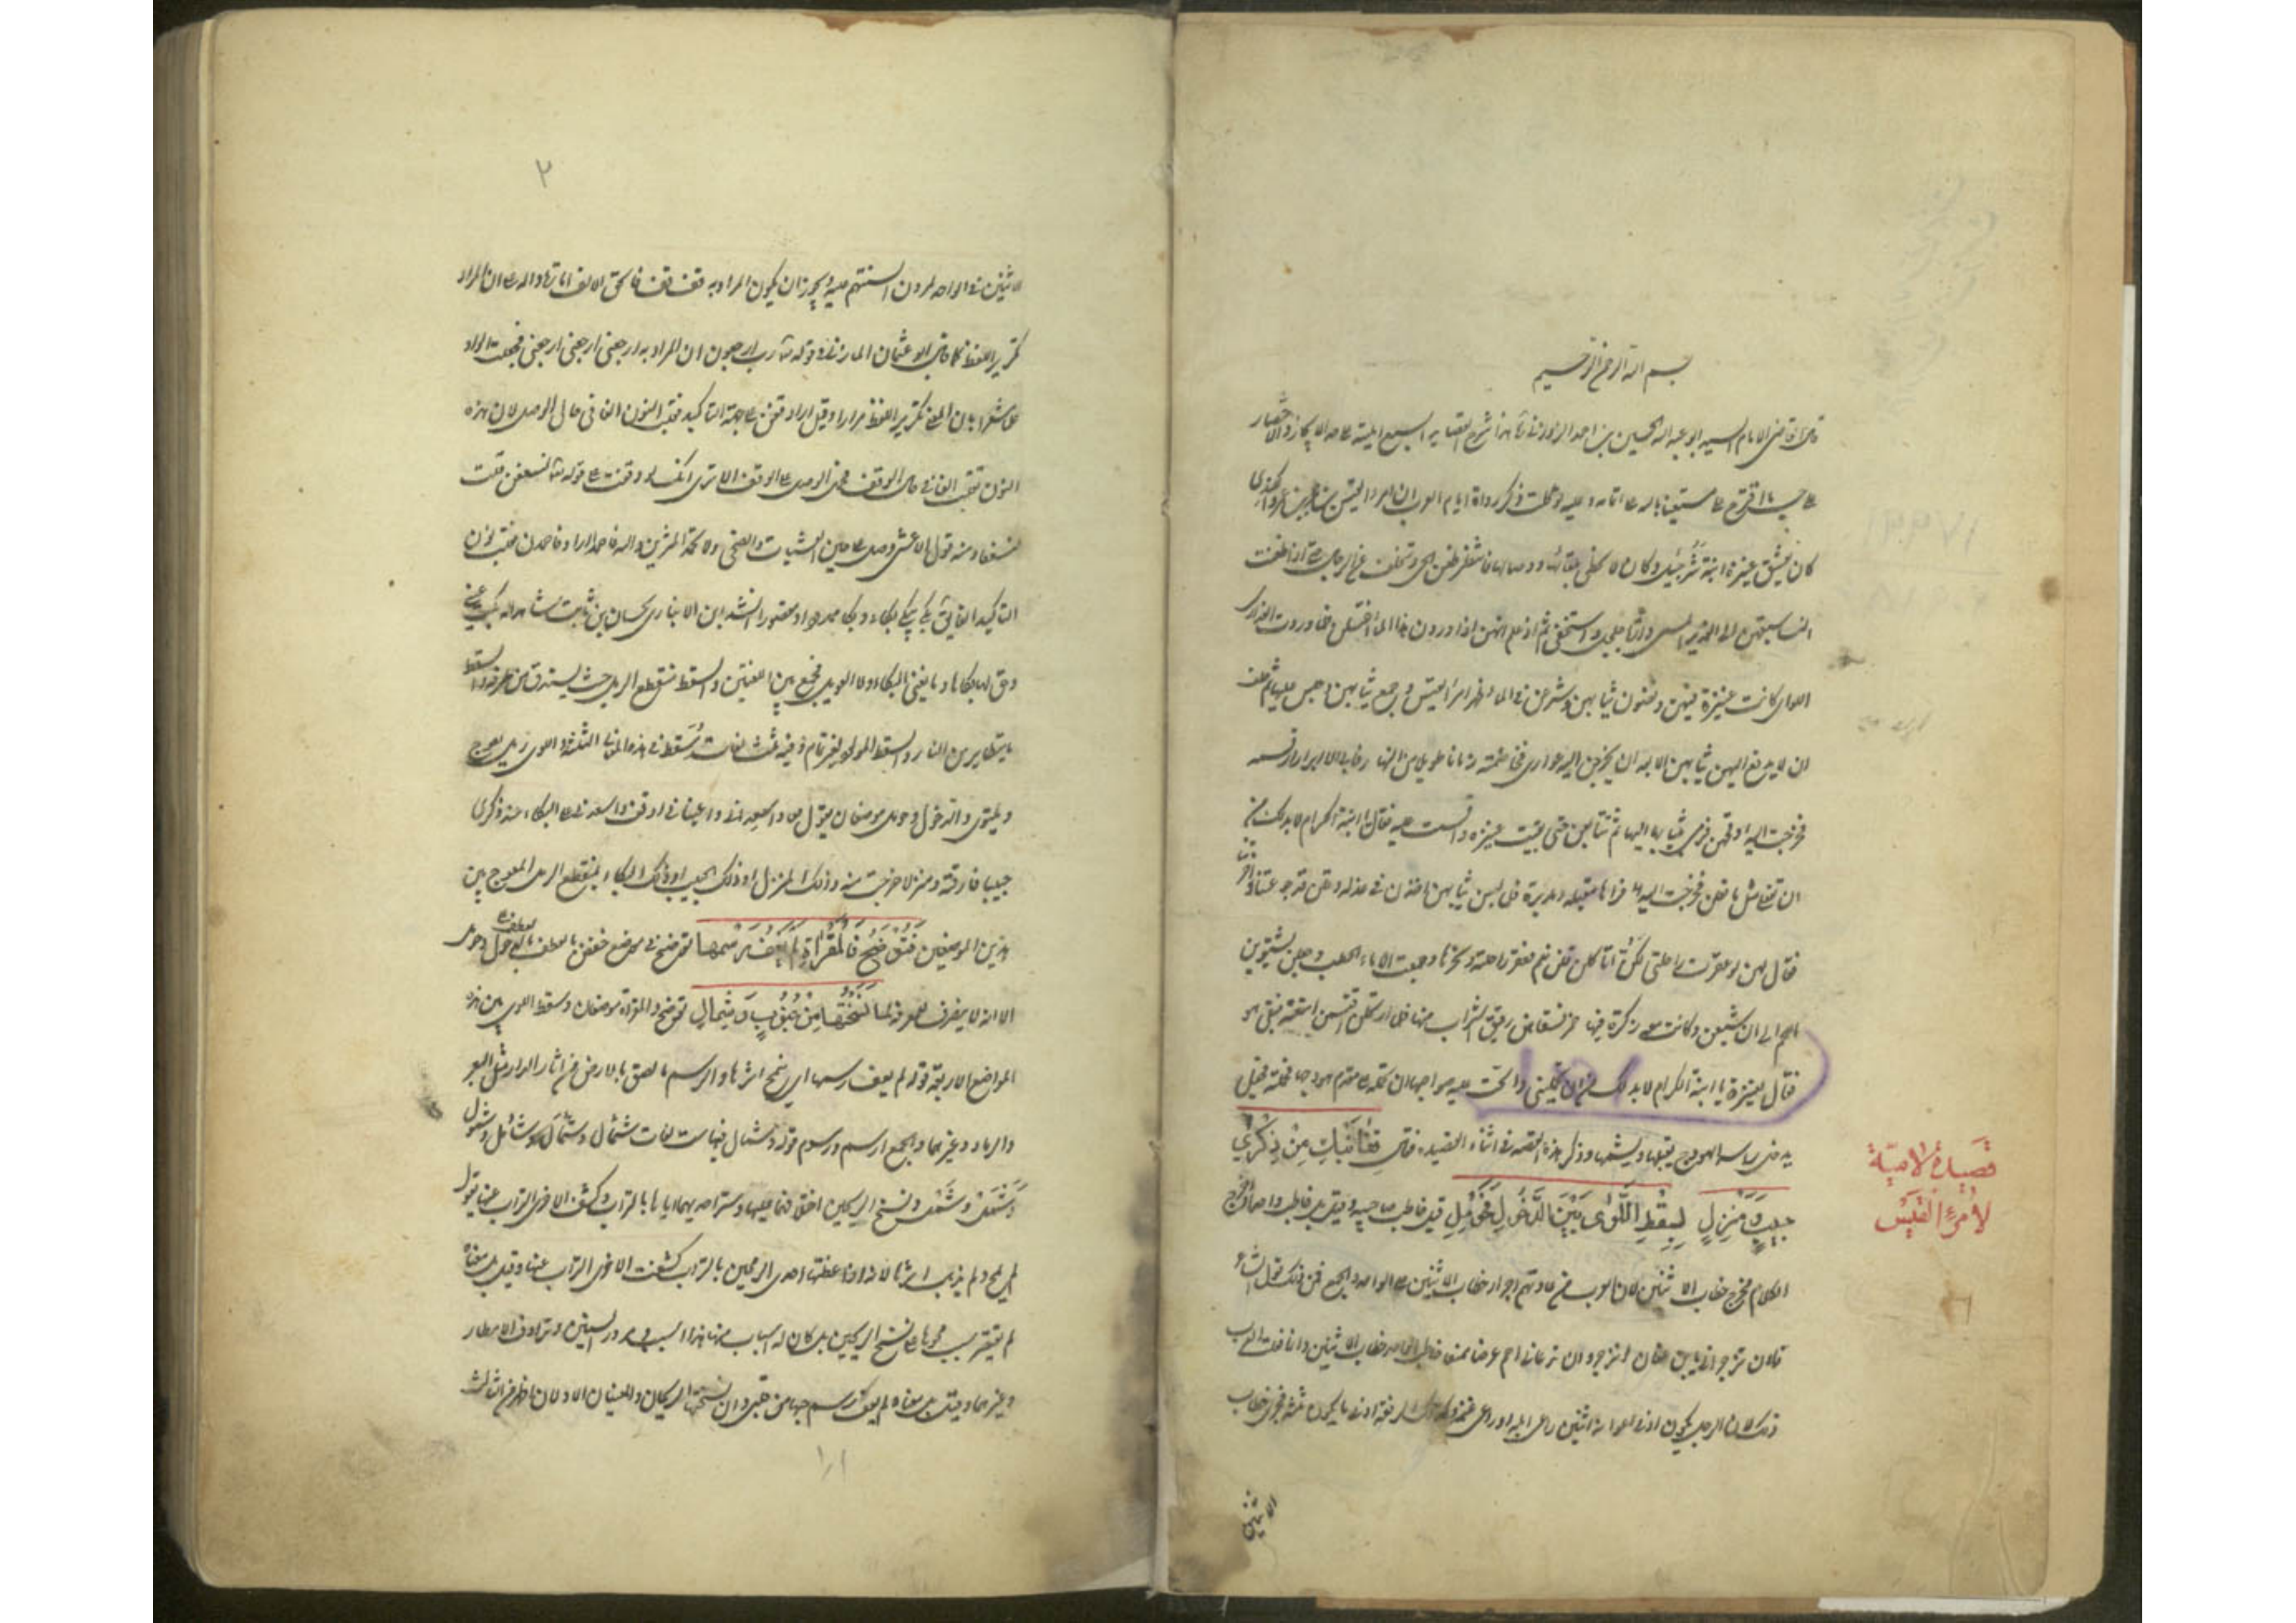 بسم الله الرحمن الرحيم
قال القاضي الامام السيد ابو عبد الله الحسين بن احمد الزوزني هذا شرح القصايد السبع امليته على حد الايجاز والاختصار
على حسب ما اقترح على مستعينا بالله على اتمامه وعليه توكلت ذكر رواة ايام العرب ان امرء القيس بن حجر بن عمرو الكندي
كان يعشق عنيزة ابنة شرحبيل وكان لا يحظى بلقائها ووصالها فانتظر ظعن الحي وتخلف عن الرجال حتى اذا ظعنت
النساء سبقهن الى الغدير المسمى دارة جلجل واستخفى ثم اذ علم انهن اذا وردن هذا الماء اغتسلن فلما وردت العذارى
اللواتي كانت عنيزة فيهن ونضون ثيابهن وشرعن في الماء ظهر امرء القيس وجمع ثيابهن وجلس عليها ثم حلف
ان لا يدفع اليهن ثيابهن الا بعد ان يخرجن اليه عواري فخاصمنه زمانا طويلا من النهار فابى الا ابرار قسمه
فخرجت اليه اوقحهن فرمى بثيابها اليها ثم تتابعن حتى بقيت عنيزة واقسمت عليه فقال يا ابنة الكرام لا بد لك من
ان تفعلي مثل ما فعلن فخرجت اليه فراها مقبلة ومدبرة فلما لبسن ثيابهن اخذن في عذله وقلن قد جوعتنا واخرتنا
فقال لهن لو عقرت راحلتي لكن اتاكلن قلن نعم فعقر راحلته ونحرها وجمعت الاماء الحطب وجعلن يشتوين
اللحم الى ان شبعن وكانت معه زكرة فيها خمر فسقاهن
فقال لعنيزة يا ابنة الكرام لا بد لك من ان تحمليني والحت عليه صواحبها ان تحمله على مقدم هودجها فحملته فجعل
يدخل راسه الهودج يقبلها ويشمها وذكر هذه القصة في اثناء القصيدة فقال قِفَا نَبْكِ مِنْ ذِكْرَى
حَبِيبٍ وَمَنْزِلِ لِسِقْطِ اللِّوَى بَيْنَ الدَّخُولِ فَحَوْمَلِ قيل خاطب صاحبيه وقيل بل خاطب واحدا واخرج
الكلام مخرج خطاب الاثنين لان العرب من عادتهم اجراء خطاب الاثنين على الواحد والجمع فمن ذلك قول الشاعر
فان تزجراني يابن عفان انزجر وان ترعياني احم عرضا ممنعا خاطب الواحد خطاب الاثنين وانما فعلت العرب
ذلك لان الرجل يكون ادنى اعوانه اثنين راعي ابله وراعي غنمه وكذلك الرفقة ادنى ما يكون ثلثة فجرى خطاب
الاثنين
قصيدة لامية
لامرء القيس
٢
الاثنين في الواحد لمرون السنتهم عليه ويجوز ان يكون المراد به قف قف فالحق الالف امارة دالة على ان المراد
تكرير اللفظ كما قال ابو عثمان المازني في قوله رب ارجعون ان المراد به ارجعني ارجعني ارجعني فجعلت الواو
علما مشعرا بان المعنى تكرير اللفظ مرارا وقيل اراد قفن على جهة التاكيد فقلب النون الفا في حال الوصل لان هذه
النون تقلب الفا في حال الوقف فحمل الوصل على الوقف الا ترى انك لو وقفت على قوله لنسفعن قلت
لنسفعا ومنه قول الاعشى وصل على حين العشيات والضحى ولا تحمد المثرين والله فاحمدا اراد فاحمدن فقلب نون
التاكيد الفا يقال بكى يبكي بكاء وبكا ممدودا ومقصورا انشد ابن الانباري لحسان بن ثابت شاهدا له بكت عيني
وحق لها بكاها وما يغني البكاء ولا العويل فجمع بين اللغتين والسقط منقطع الرمل حيث يستدق من طرفه والسقط
ما يتطاير من النار والسقط المولود لغير تمام وفيه ثلث لغات سقط في هذه المعاني الثلثة واللوى رمل يعوج
ويلتوي والدخول وحومل موضعان يقول قفا واسعداني واعيناني او قف واسعدني على البكاء عند ذكرى
حبيبا فارقته ومنزلا خرجت منه وذلك المنزل او ذلك الحبيب او ذلك البكاء بمنقطع الرمل المعوج بين
هذين الموضعين فَتُوضِحَ فَالْمِقْرَاةِ لَمْ يَعْفُ رَسْمُهَا توضح في موضع خفض بالعطف على حومل
الا انه لا ينصرف للمعرفة لِمَا نَسَجَتْهَا مِنْ جُنُوبٍ وَشَمْأَلِ توضح والمقراة موضعان وسقط اللوى بين هذه
المواضع الاربعة قوله لم يعف رسمها اي لم ينمح اثرها والرسم ما لصق بالارض من اثار الدار مثل البعر
والرماد وغيرهما والجمع ارسم ورسوم قوله وشمال فيها ست لغات شمال وشمال وشامل وشمول
وشمل وشمل ونسج الريحين اختلافهما عليها وستر احديهما اياها بالتراب وكشف الاخرى التراب عنها يقول
لم ينمح ولم يذهب اثرها لانه اذا غطتها احدى الريحين بالتراب كشفت الاخرى التراب عنها وقيل بل معناه
لم يقتصر سبب محوها على نسج الريحين بل كان له اسباب منها هذا السبب ومر السنين وترادف الامطار
وغيرهما وقيل بل معناه لم يعف رسم حبها من قلبي وان نسجتها الريحان والمعنيان الاولان اظهر من الثالث